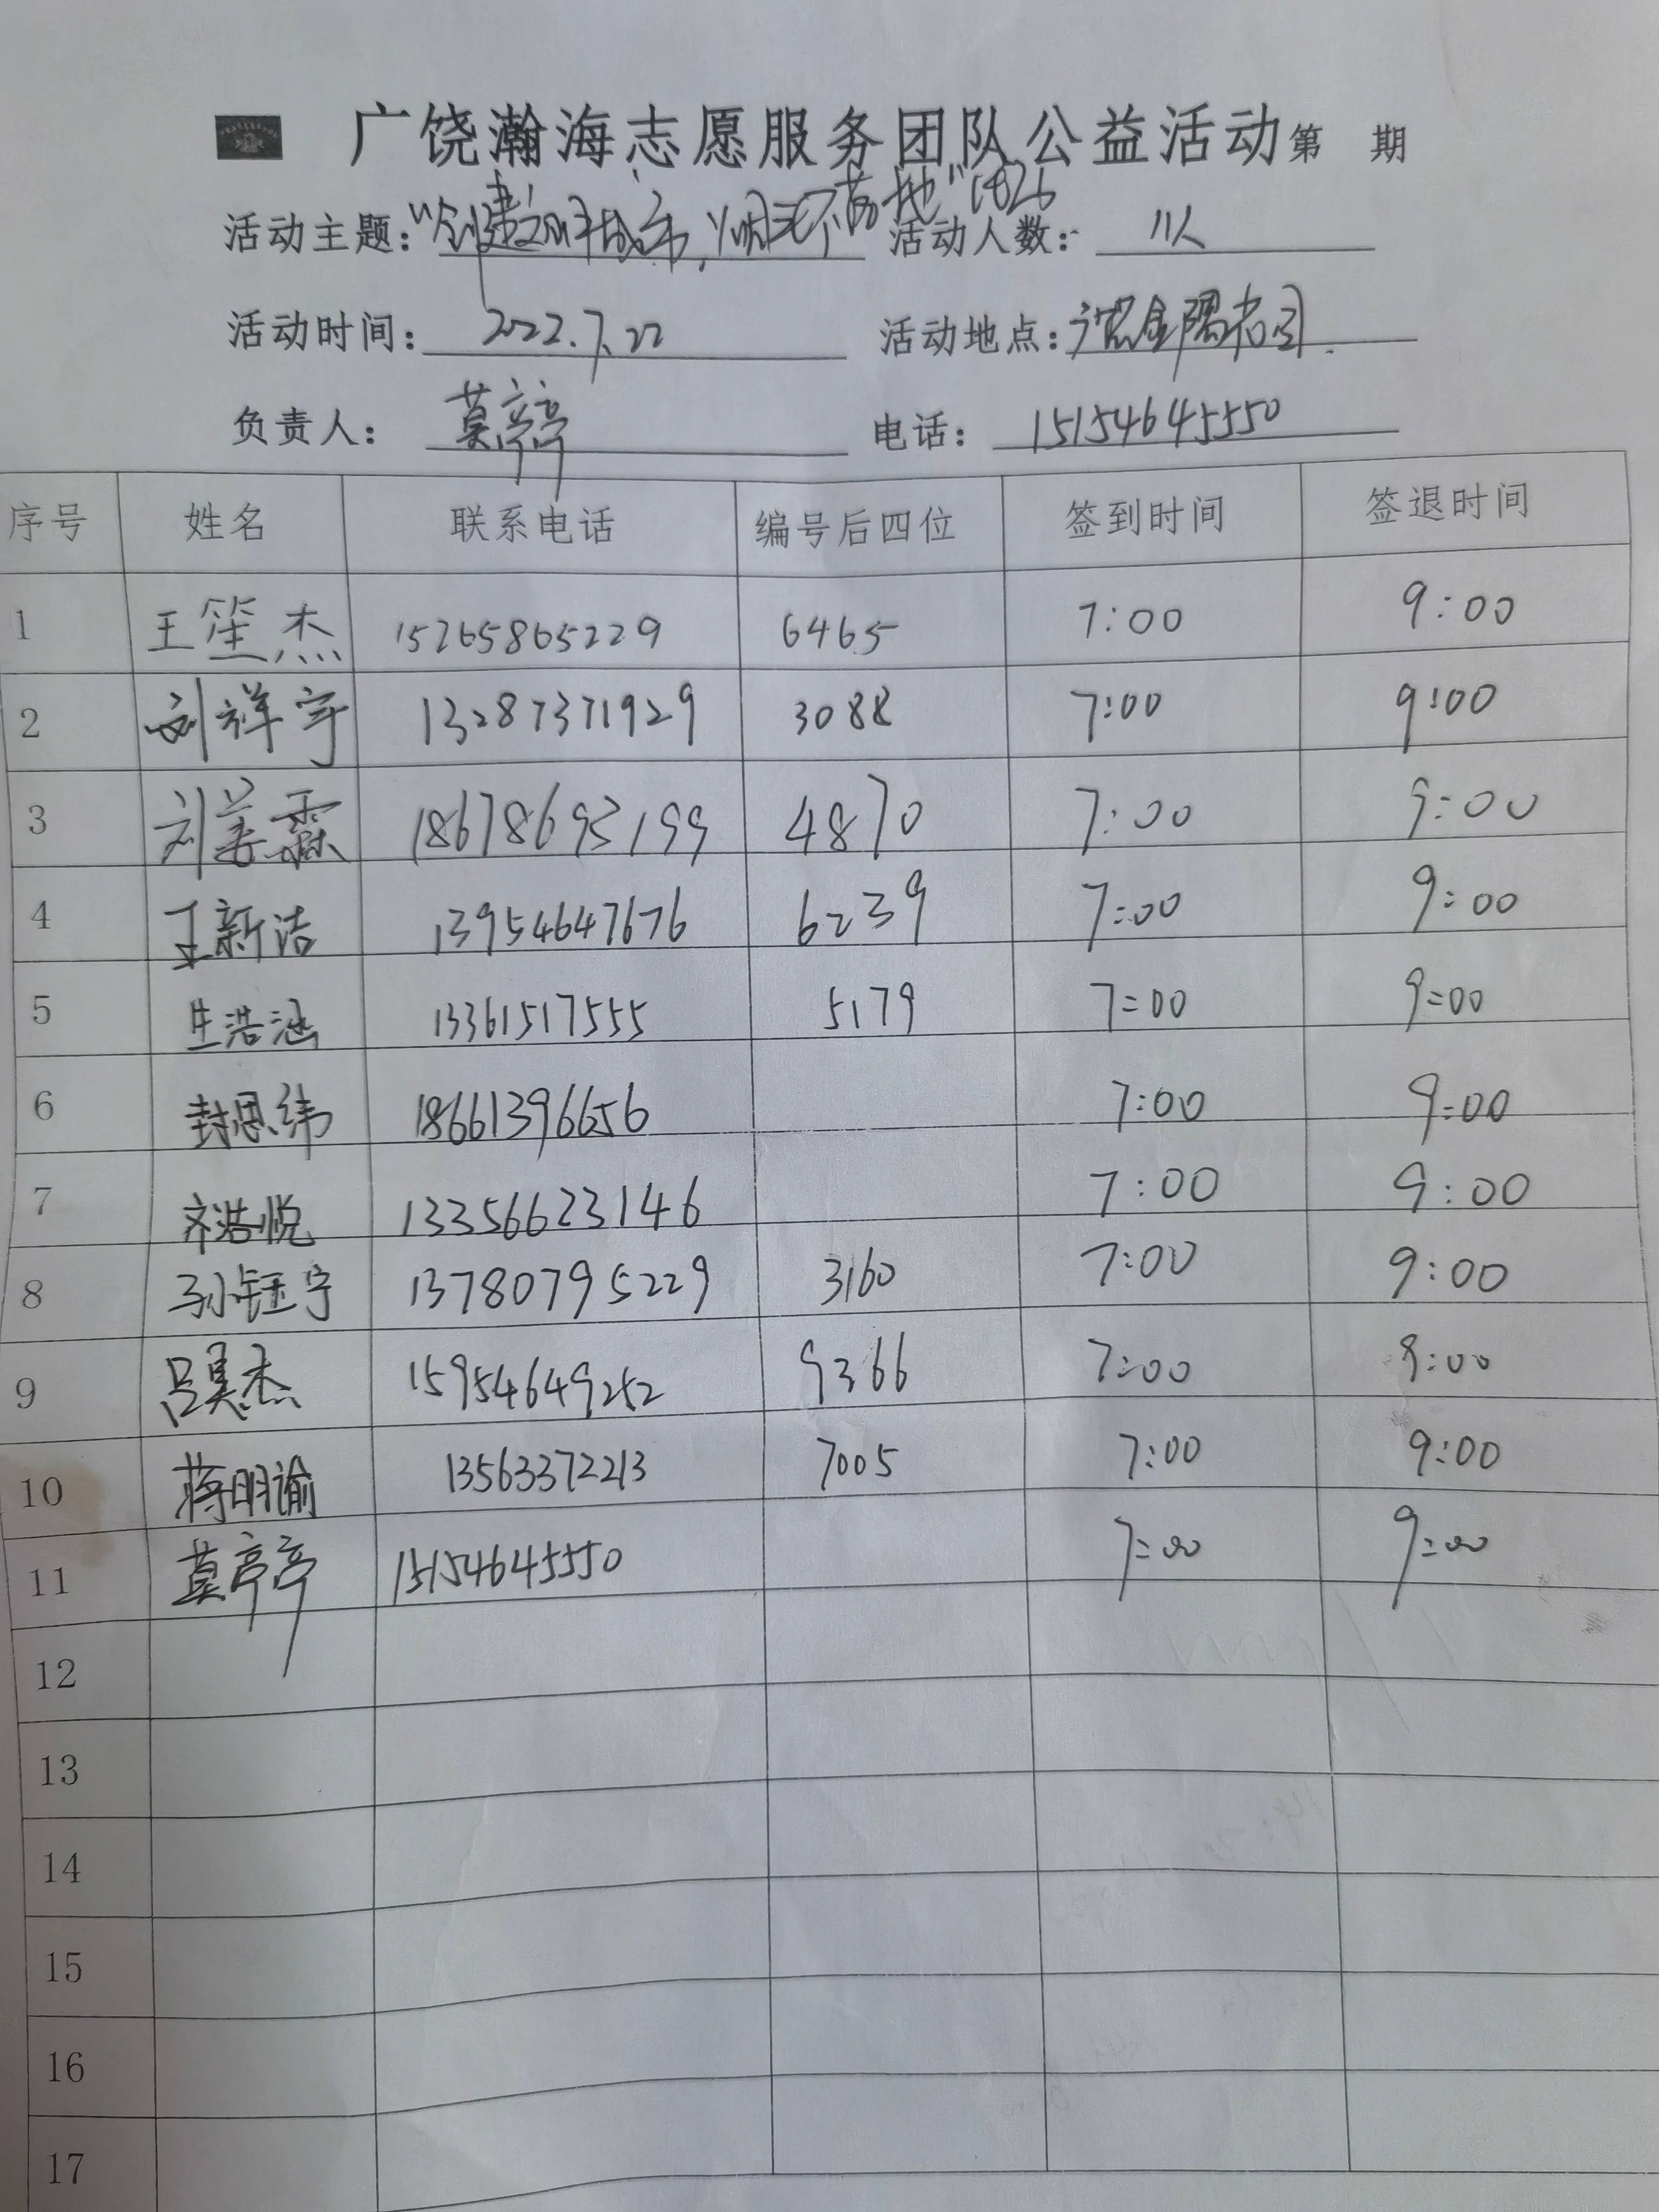 广饶瀚海志愿服务团队公益活动第 期
活动主题：“创建文明城市，烟头不落地” 活动人数： 11人
活动时间： 2022.7.22 活动地点：
负责人： 莫亭亭 电话： 15154645550
序号 姓名 联系电话 编号后四位 签到时间 签退时间
1 王笙杰 15265865229 6465 7:00 9:00
2 刘祥宇 13287371929 3088 7:00 9:00
3 刘姜霖 18678693199 4870 7:00 9:00
4 王新洁 13954647676 6239 7:00 9:00
5 生浩涵 13361517555 5179 7:00 9:00
6 封思纬 18661396656 7:00 9:00
7 齐浩悦 13356623146 7:00 9:00
8 孙钰宁 13780795229 3160 7:00 9:00
9 吕昊杰 15954649252 9366 7:00 9:00
10 蒋明谕 13563372213 7005 7:00 9:00
11 莫亭亭 15154645550 7:00 9:00
12
13
14
15
16
17